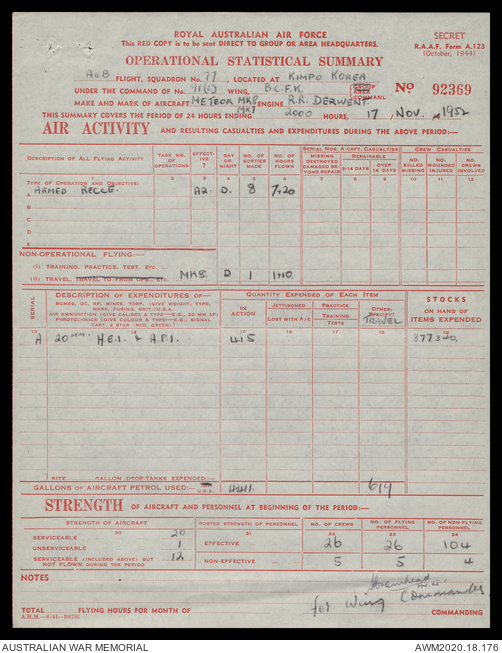 ROYAL AUSTRALIAN AIR FORCE
This RED COPY is to be sent DIRECT TO GROUP OR AREA HEADQUARTERS.
SECRET
R.A.A.F. Form A.123
(October, 1944)
OPERATIONAL STATISTICAL SUMMARY
A&B FLIGHT, SQUADRON No. 77, LOCATED AT KIMPO KOREA
UNDER THE COMMAND OF No. 91(C) WING, B.C.F.K. (GROUP AREA COMMAND)
No 92369
MAKE AND MARK OF AIRCRAFT METEOR MK8 MK7 ENGINE R.R. DERWENT
THIS SUMMARY COVERS THE PERIOD OF 24 HOURS ENDING 2000 HOURS, 17 Nov. 1952
AIR ACTIVITY —AND RESULTING CASUALTIES AND EXPENDITURES DURING THE ABOVE PERIOD:—
DESCRIPTION OF ALL FLYING ACTIVITY
TASK NO. OF OPERATIONS
EFFECTIVE ?
DAY OR NIGHT
NO. OF SORTIES MADE
NO. OF HOURS FLOWN
SERIAL NOS. A-CRFT. CASUALTIES
MISSING DESTROYED DAMAGED BEYOND REPAIR
REPAIRABLE
2-14 DAYS
OVER 14 DAYS
CREW CASUALTIES
NO. KILLED MISSING
NO. WOUNDED INJURED
NO. CREWS INVOLVED
1 2 3 4 5 6 7 8 9 10 11 12
TYPE OF OPERATION AND OBJECTIVE.
A ARMED RECCE. A2. D. 8 7.20
B
C
D
E
NON-OPERATIONAL FLYING:—
(I) TRAINING, PRACTICE, TEST, ETC.
(II) TRAVEL, TRAVEL TO/FROM OPS., ETC. MK8. D 1 1.10
SERIAL
DESCRIPTION OF EXPENDITURES OF—
BOMBS, DC, RP, MINES, TORP. (GIVE WEIGHT, TYPE, MARK, FUSING, BRIT./U.S.A.
AIR AMMUNITION (GIVE CALIBRE & TYPE—E.G., 20 MM AP)
PYROTECHNICS (GIVE COLOUR & TYPE—E.G., SIGNAL CART. 2 STAR (RED, GREEN).)
QUANTITY EXPENDED OF EACH ITEM
IN ACTION
JETTISONED
LOST WITH A/C
PRACTICE
TRAINING TESTS
OTHER: (SPECIFY)
TRAVEL
STOCKS
ON HAND OF ITEMS EXPENDED
13 14 15 16 17 18 19
A 20mm H.E.I. & A.P.I. 415 377340.
SIZE GALLON DROP-TANKS EXPENDED
GALLONS OF AIRCRAFT PETROL USED:— U.S.A. 441. 619
STRENGTH OF AIRCRAFT AND PERSONNEL AT BEGINNING OF THE PERIOD:—
STRENGTH OF AIRCRAFT
POSTED STRENGTH OF PERSONNEL
NO. OF CREWS
NO. OF FLYING PERSONNEL
NO. OF NON-FLYING PERSONNEL
20 21 22 23 24
SERVICEABLE 20
UNSERVICEABLE 1
SERVICEABLE (INCLUDED ABOVE) BUT NOT FLOWN DURING THE PERIOD 12
EFFECTIVE 26 26 104
NON-EFFECTIVE 5 5 4
NOTES
for Wing Commander
TOTAL FLYING HOURS FOR MONTH OF
COMMANDING
AUSTRALIAN WAR MEMORIAL
AWM2020.18.176